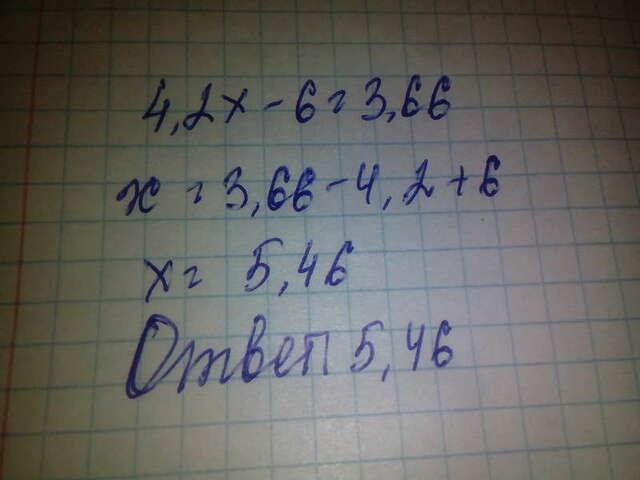 4,2x - 6 = 3,66
x = 3,66 - 4,2 + 6
x = 5,46
Ответ 5,46